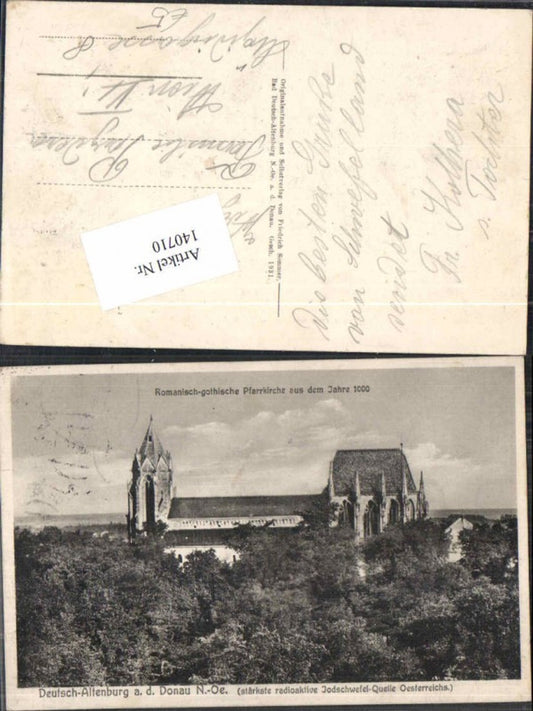 Die besten Grüße
von Schwefelland
sendet
Fr. Kolbena
u. Tochter
Originalaufnahme und Selbstverlag von Friedrich Sommer,
Bad Deutsch-Altenburg N.-Oe. a. d. Donau. Gesch. 1931.
Familie
Wien
Artikel Nr.
140710
Romanisch-gothische Pfarrkirche aus dem Jahre 1000
Deutsch-Altenburg a. d. Donau N.-Oe. (stärkste radioaktive Jodschwefel-Quelle Oesterreichs.)